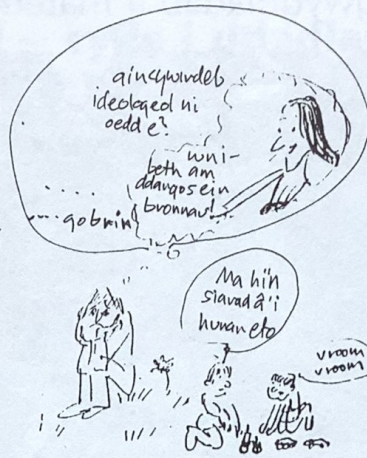 ai'n cywirdeb
ideolegol ni
oedd e?
wn i-
beth am
ddangos ein
bronnau!
.....
.... gobrin
Ma hi'n
siarad â'i
hunan eto
vroom
vroom